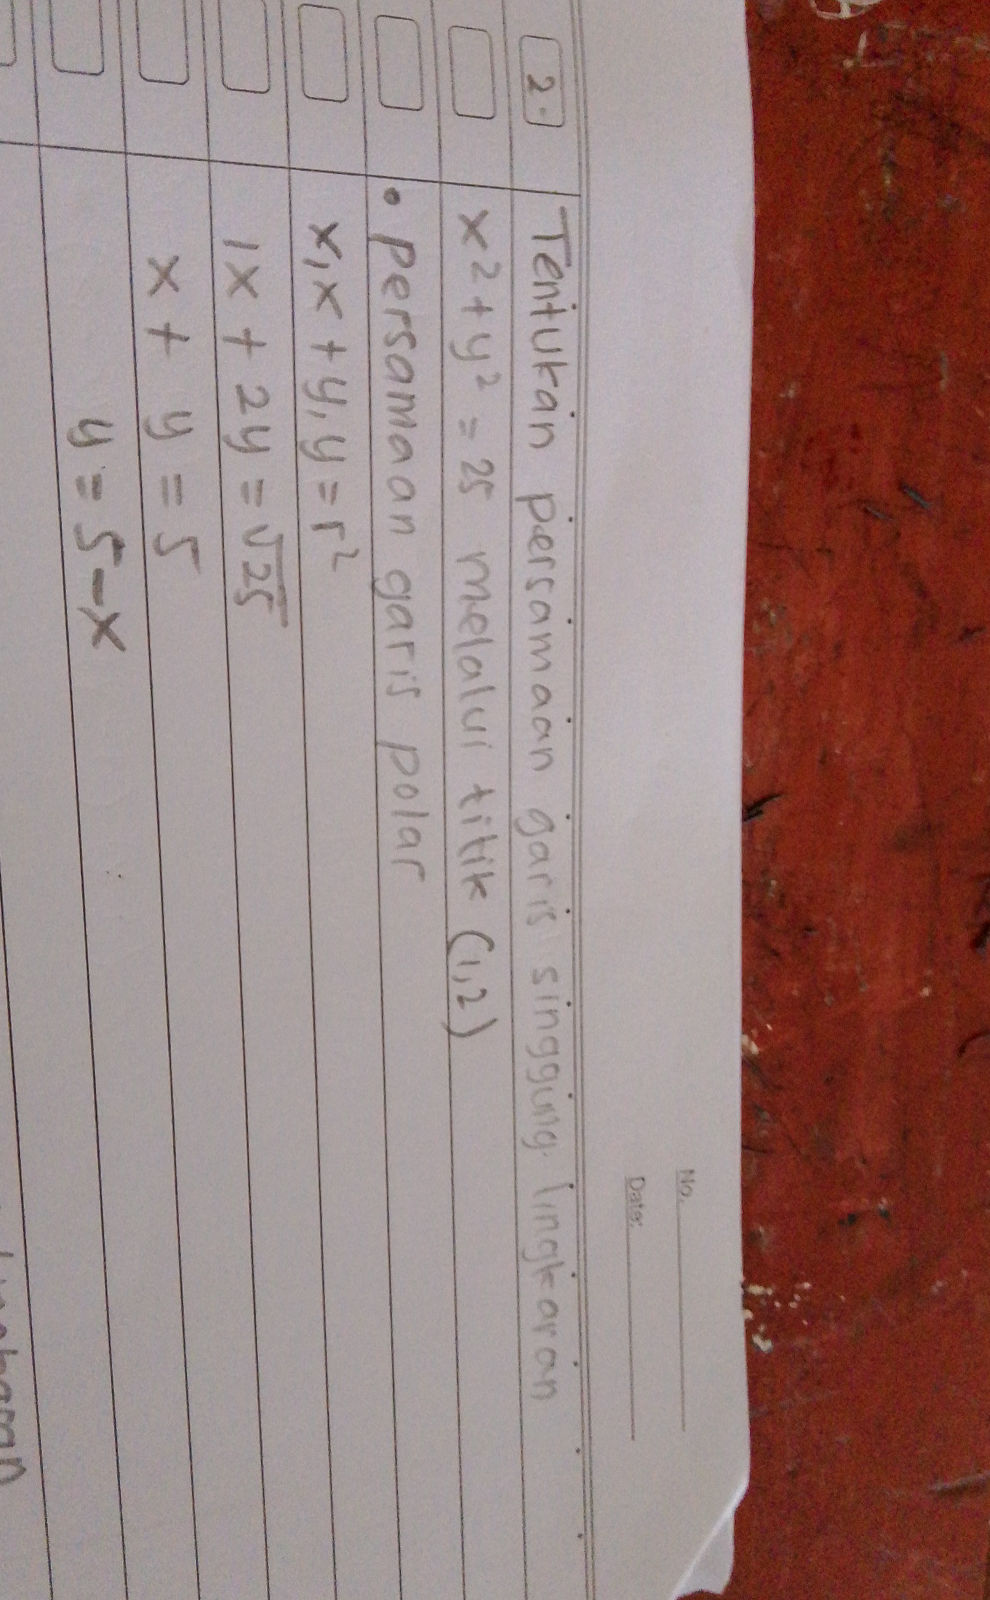 No.
Date:
2. Tentukan persamaan garis singgung lingkaran
x² + y² = 25 melalui titik (1,2)
• persamaan garis polar
x₁x + y₁y = r²
1x + 2y = √25
x + y = 5
y = 5 - x